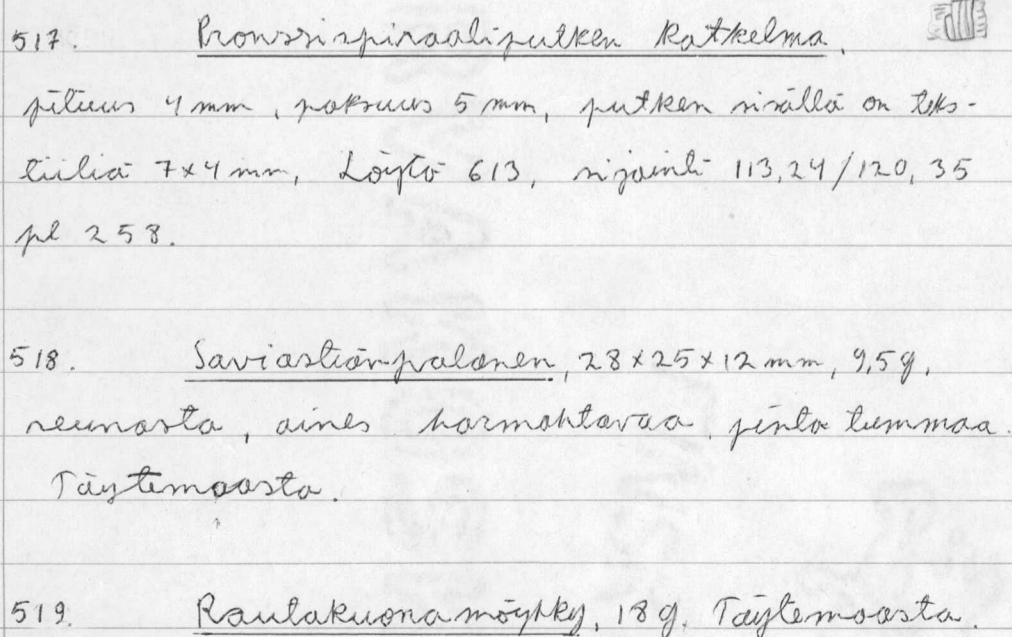 517. Pronssispiraaliputken katkelma,
pituus 4 mm, paksuus 5 mm, putken sisällä on teks-
tiiliä 7x4 mm, Löytö 613, sijainti 113,24/120,35
pl 258.
518. Saviastianpalanen, 28x25x12 mm, 9,5g,
reunasta, aines harmahtavaa, pinta tummaa.
Täytemaasta.
519. Rautakuonamöykky, 18g. Täytemaasta.